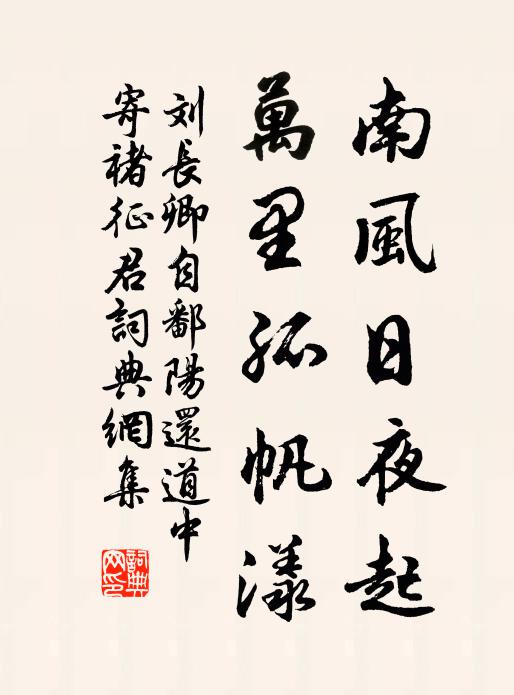 南風日夜起
萬里孤帆漾
刘長卿自鄱陽還道中
寄褚征君詞典網集
詞典网印